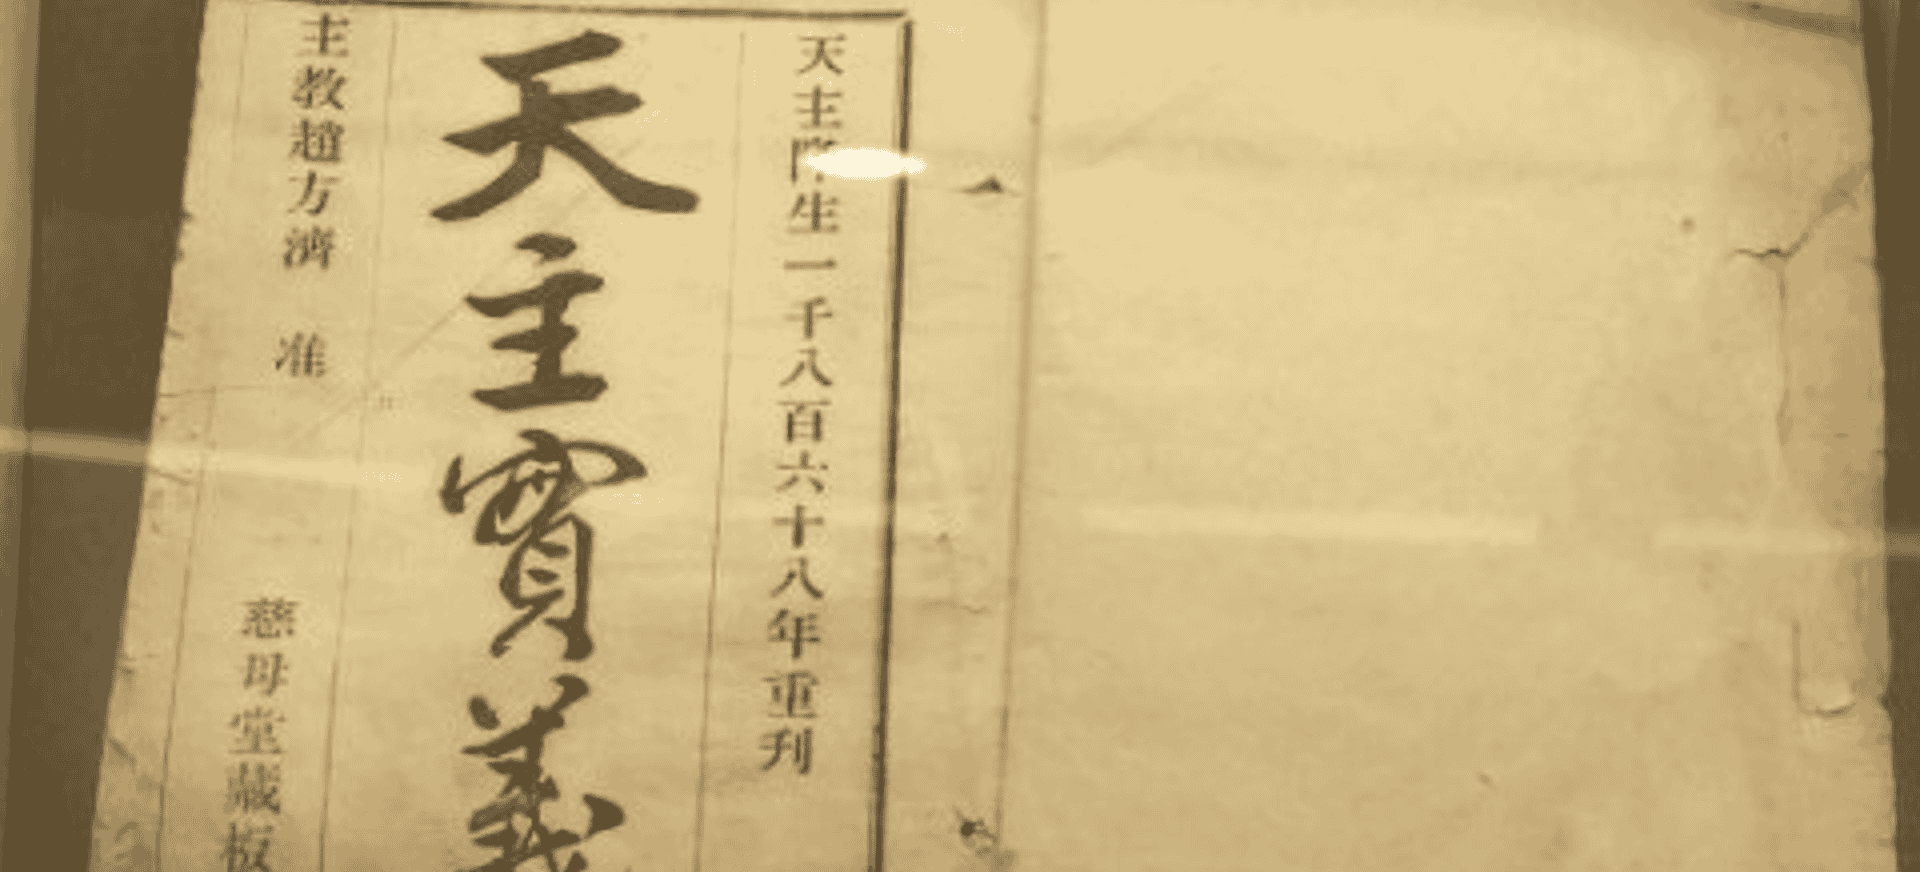 天主降生一千八百六十八年重刊
天主實義
主教趙方濟 准
慈母堂藏板